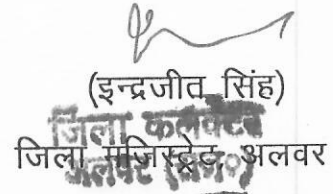 (इन्द्रजीत सिंह)
जिला कलक्टर
जिला मजिस्ट्रेट, अलवर
अलवर (राज०)